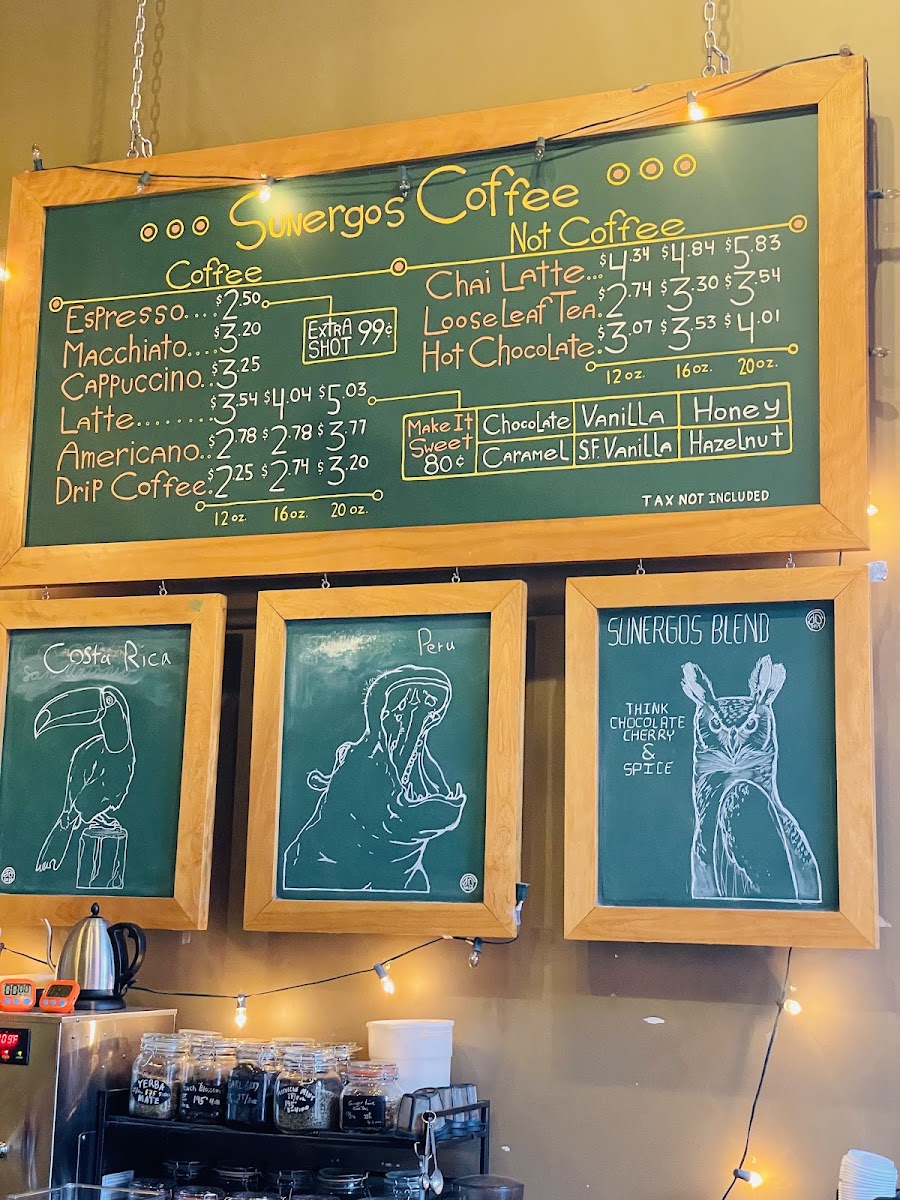 Sunergos Coffee
Coffee
Espresso.... $2.50
Macchiato.... $3.20
Cappuccino.. $3.25
Latte........ $3.54 $4.04 $5.03
Americano.. $2.78 $2.78 $3.77
Drip Coffee. $2.25 $2.74 $3.20
12 oz. 16 oz. 20 oz.
Extra
Shot 99¢
Not Coffee
Chai Latte... $4.34 $4.84 $5.83
Loose Leaf Tea. $2.74 $3.30 $3.54
Hot Chocolate. $3.07 $3.53 $4.01
12 oz. 16 oz. 20 oz.
Make It
Sweet
80¢
Chocolate Vanilla Honey
Caramel S.F. Vanilla Hazelnut
TAX NOT INCLUDED
Costa Rica
Peru
SUNERGOS BLEND
THINK
CHOCOLATE
CHERRY
&
SPICE
YERBA
MATE